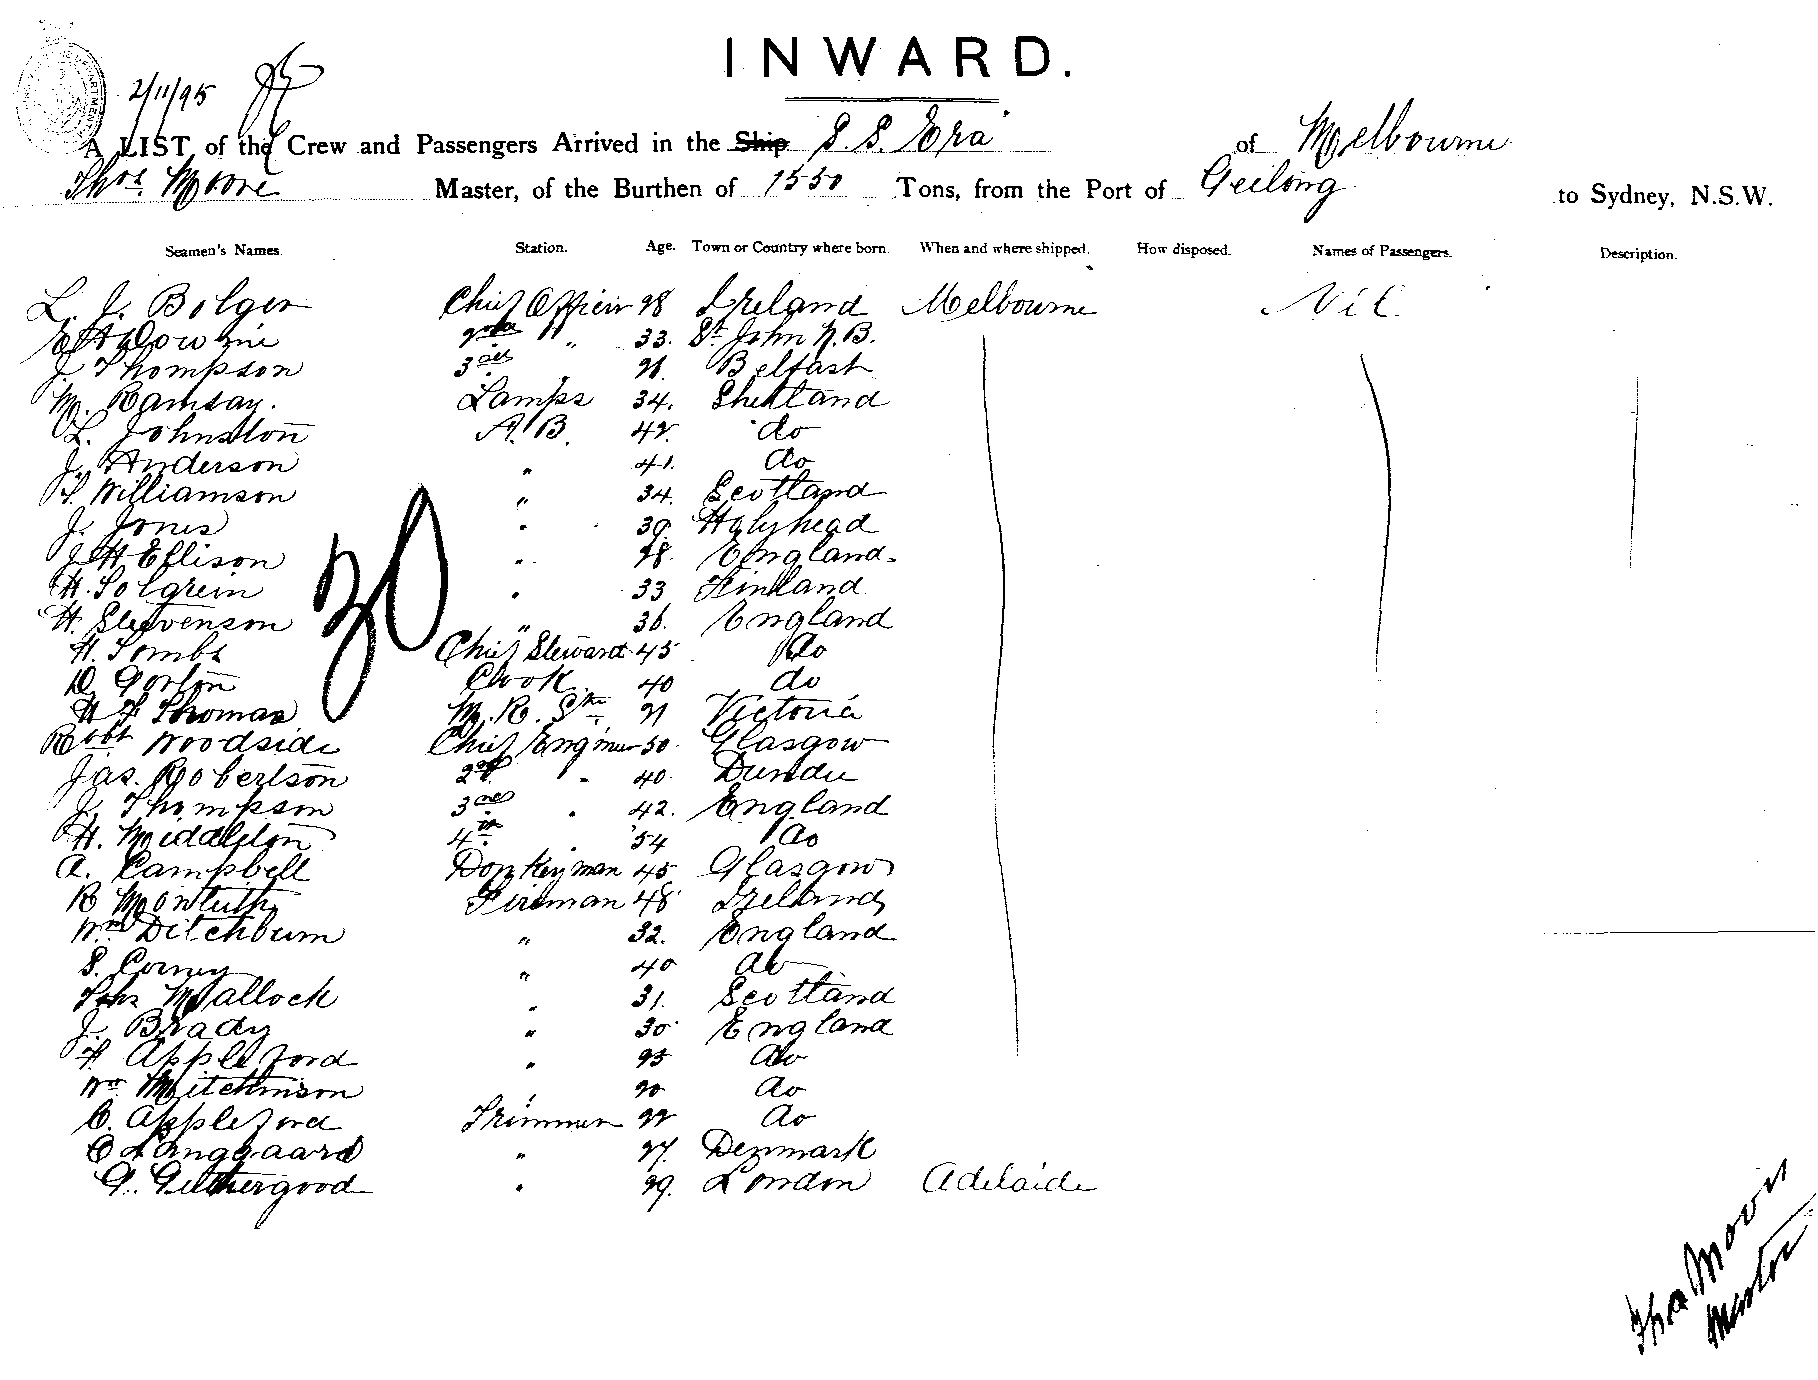 INWARD.
2/11/95
A LIST of the Crew and Passengers Arrived in the Ship S. S. Era of Melbourne
Thos. Moore Master, of the Burthen of 1550 Tons, from the Port of Geelong to Sydney, N.S.W.
Seamen's Names. Station. Age. Town or Country where born. When and where shipped. How disposed. Names of Passengers. Description.
L. J. Bolger Chief Officer 28 Ireland Melbourne Nil.
2nd " 33. St John N.B.
J. Thompson 3rd " 21. Belfast
M. Ramsay. Lamps 34. Shetland
L. Johnston A. B. 42. do
J. Anderson " 41. do
Williamson " 34. Scotland
J. Jones " 39. Holyhead
J H Ellison " 28. England.
H. Solgrein " 33 Finland
H. Steevenson " 36. England
H. Tombs Chief Steward 45 do
D. Gorton Cook 40 do
H F Thomas M. R. Std 21 Victoria
Robt Woodside Chief Engineer 50. Glasgow
Jas. Robertson 2nd " 40. Dundee
J. Thompson 3rd " 42. England
H. Middleton 4th 54 do
A. Campbell Donkeyman 45 Glasgow
R Monteith Fireman 48 Ireland
Wm Ditchburn " 32. England
S. Corney " 40 do
John McCallock " 31. Scotland
J. Brady " 30 England
F Appleford " 25 do
Wm Mitchinson " 20 do
C. Appleford Trimmer 22 do
" 27. Denmark
G. Gethergood " 29. London Adelaide
30
Thos Moore
Master